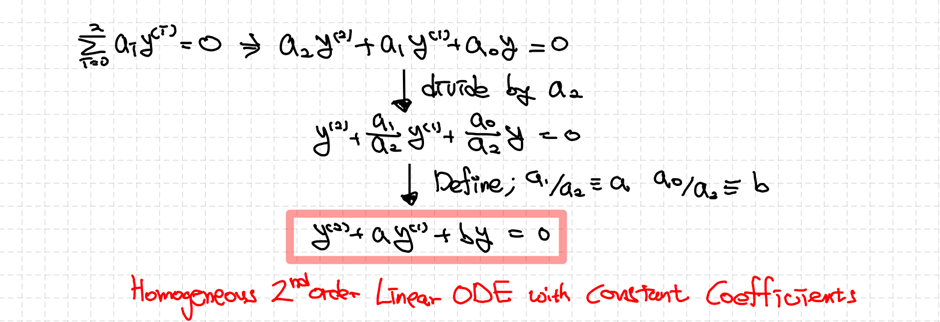 ∑_{i=0}^{2} a_i y^{(i)} = 0 → a_2 y^{(2)} + a_1 y^{(1)} + a_0 y = 0
divide by a_2
y^{(2)} + \frac{a_1}{a_2} y^{(1)} + \frac{a_0}{a_2} y = 0
Define; a_1/a_2 ≡ a a_0/a_2 ≡ b
y^{(2)} + a y^{(1)} + b y = 0
Homogeneous 2nd order Linear ODE with Constant Coefficients